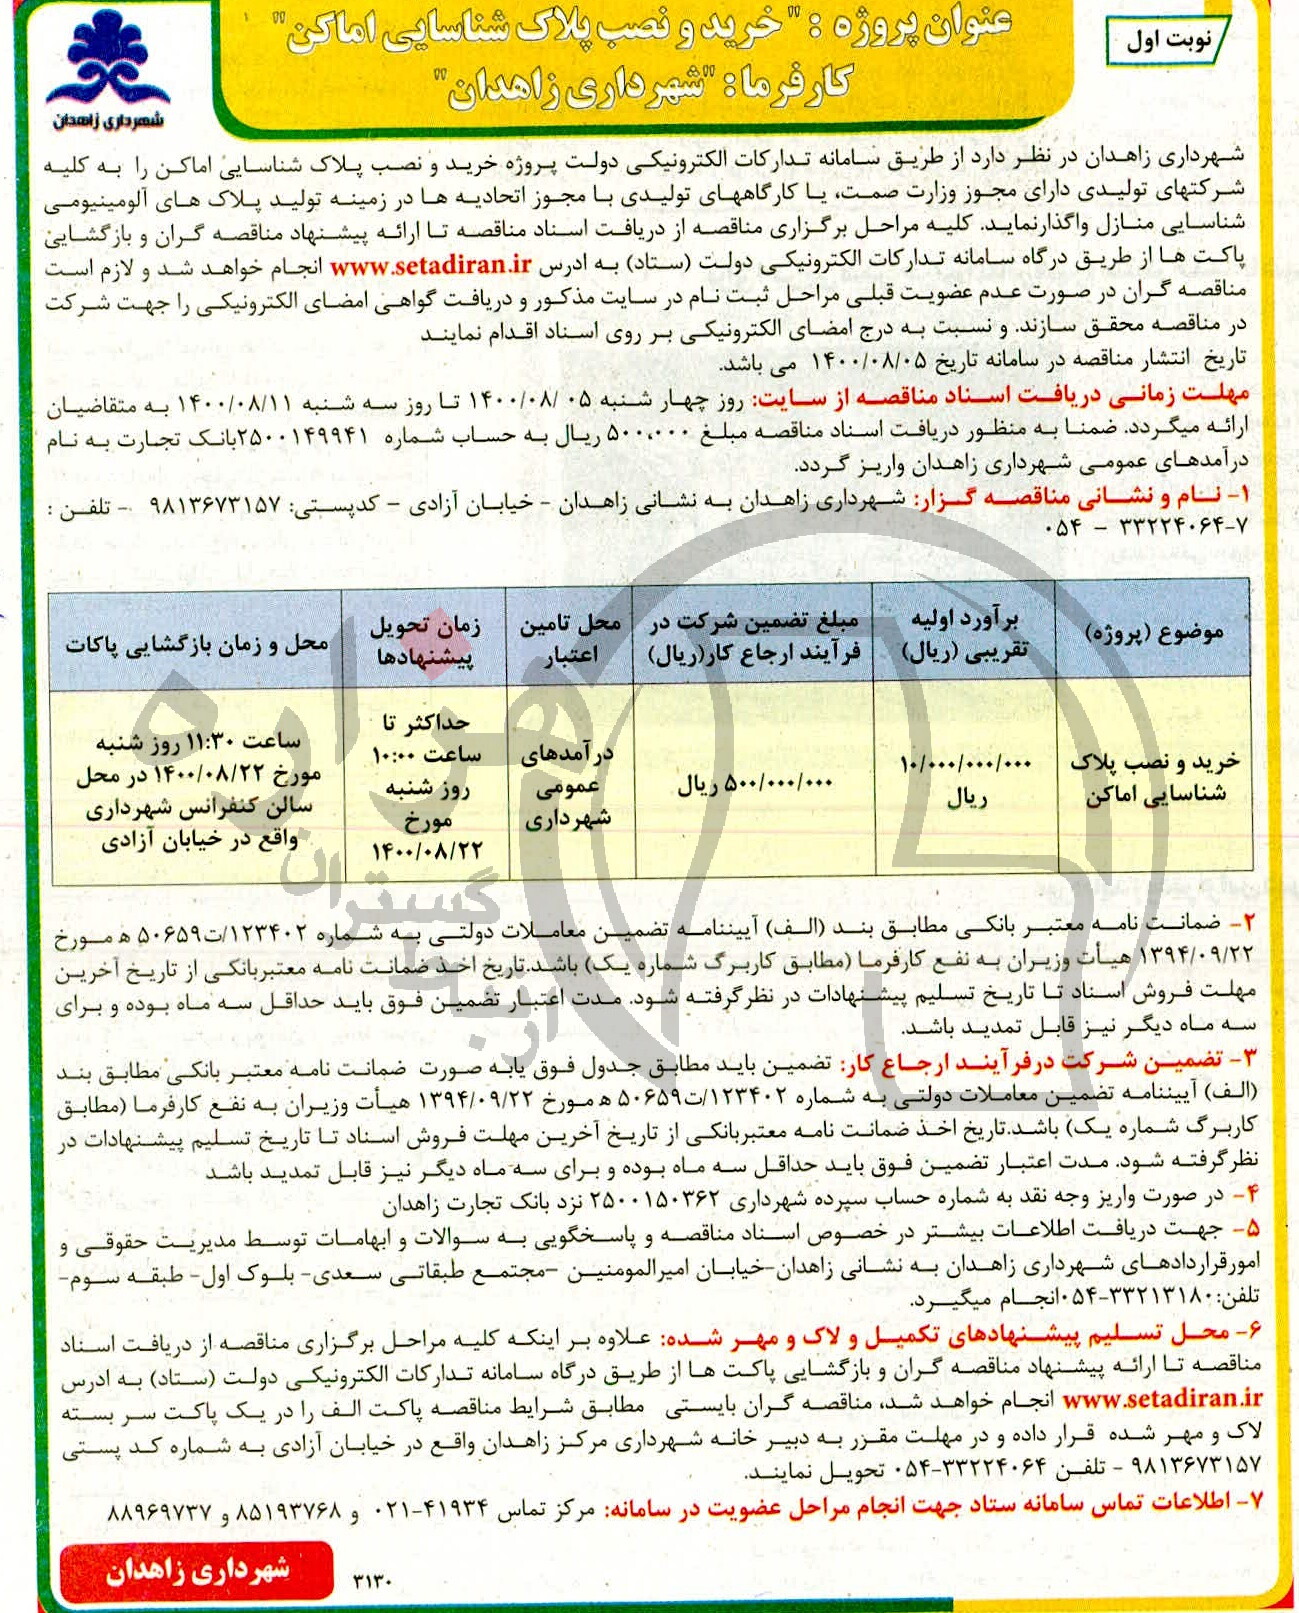 نوبت اول
عنوان پروژه : "خرید و نصب پلاک شناسایی اماکن"
کارفرما: "شهرداری زاهدان"
شهرداری زاهدان
شهرداری زاهدان در نظر دارد از طریق سامانه تدارکات الکترونیکی دولت پروژه خرید و نصب پلاک شناسایی اماکن را به کلیه
شرکتهای تولیدی دارای مجوز وزارت صمت، یا کارگاههای تولیدی با مجوز اتحادیه ها در زمینه تولید پلاک های آلومینیومی
شناسایی منازل واگذارنماید. کلیه مراحل برگزاری مناقصه از دریافت اسناد مناقصه تا ارائه پیشنهاد مناقصه گران و بازگشایی
پاکت ها از طریق درگاه سامانه تدارکات الکترونیکی دولت (ستاد) به ادرس www.setadiran.ir انجام خواهد شد و لازم است
مناقصه گران در صورت عدم عضویت قبلی مراحل ثبت نام در سایت مذکور و دریافت گواهی امضای الکترونیکی را جهت شرکت
در مناقصه محقق سازند. و نسبت به درج امضای الکترونیکی بر روی اسناد اقدام نمایند
تاریخ انتشار مناقصه در سامانه تاریخ ۱۴۰۰/۰۸/۰۵ می باشد.
مهلت زمانی دریافت اسناد مناقصه از سایت: روز چهار شنبه ۰۵ /۱۴۰۰/۰۸ تا روز سه شنبه ۱۴۰۰/۰۸/۱۱ به متقاضیان
ارائه میگردد. ضمنا به منظور دریافت اسناد مناقصه مبلغ ۵۰۰،۰۰۰ ریال به حساب شماره ۲۵۰۰۱۴۹۹۴۱بانک تجارت به نام
درآمدهای عمومی شهرداری زاهدان واریز گردد.
۱- نام و نشانی مناقصه گزار: شهرداری زاهدان به نشانی زاهدان - خیابان آزادی - کدپستی: ۹۸۱۳۶۷۳۱۵۷ - تلفن :
۷-۳۳۲۲۴۰۶۴ - ۰۵۴
موضوع (پروژه)
برآورد اولیه
تقریبی (ریال)
مبلغ تضمین شرکت در
فرآیند ارجاع کار(ریال)
محل تامین
اعتبار
زمان تحویل
پیشنهادها
محل و زمان بازگشایی پاکات
خرید و نصب پلاک
شناسایی اماکن
۱۰/۰۰۰/۰۰۰/۰۰۰
ریال
۵۰۰/۰۰۰/۰۰۰ ریال
درآمدهای
عمومی
شهرداری
حداکثر تا
ساعت ۱۰:۰۰
روز شنبه
مورخ
۱۴۰۰/۰۸/۲۲
ساعت ۱۱:۳۰ روز شنبه
مورخ ۱۴۰۰/۰۸/۲۲ در محل
سالن کنفرانس شهرداری
واقع در خیابان آزادی
۲- ضمانت نامه معتبر بانکی مطابق بند (الف) آییننامه تضمین معاملات دولتی به شماره ۱۲۳۴۰۲/ت۵۰۶۵۹ ه مورخ
۱۳۹۴/۰۹/۲۲ هیأت وزیران به نفع کارفرما (مطابق کاربرگ شماره یک) باشد.تاریخ اخذ ضمانت نامه معتبربانکی از تاریخ آخرین
مهلت فروش اسناد تا تاریخ تسلیم پیشنهادات در نظرگرفته شود. مدت اعتبار تضمین فوق باید حداقل سه ماه بوده و برای
سه ماه دیگر نیز قابل تمدید باشد.
۳- تضمین شرکت درفرآیند ارجاع کار: تضمین باید مطابق جدول فوق یابه صورت ضمانت نامه معتبر بانکی مطابق بند
(الف) آییننامه تضمین معاملات دولتی به شماره ۱۲۳۴۰۲/ت۵۰۶۵۹ ه مورخ ۱۳۹۴/۰۹/۲۲ هیأت وزیران به نفع کارفرما (مطابق
کاربرگ شماره یک) باشد.تاریخ اخذ ضمانت نامه معتبربانکی از تاریخ آخرین مهلت فروش اسناد تا تاریخ تسلیم پیشنهادات در
نظرگرفته شود. مدت اعتبار تضمین فوق باید حداقل سه ماه بوده و برای سه ماه دیگر نیز قابل تمدید باشد
۴- در صورت واریز وجه نقد به شماره حساب سپرده شهرداری ۲۵۰۰۱۵۰۳۶۲ نزد بانک تجارت زاهدان
۵- جهت دریافت اطلاعات بیشتر در خصوص اسناد مناقصه و پاسخگویی به سوالات و ابهامات توسط مدیریت حقوقی و
امورقراردادهای شهرداری زاهدان به نشانی زاهدان-خیابان امیرالمومنین -مجتمع طبقاتی سعدی- بلوک اول- طبقه سوم-
تلفن:۳۳۲۱۳۱۸۰-۰۵۴انجام میگیرد.
۶- محل تسلیم پیشنهادهای تکمیل و لاک و مهر شده: علاوه بر اینکه کلیه مراحل برگزاری مناقصه از دریافت اسناد
مناقصه تا ارائه پیشنهاد مناقصه گران و بازگشایی پاکت ها از طریق درگاه سامانه تدارکات الکترونیکی دولت (ستاد) به ادرس
www.setadiran.ir انجام خواهد شد، مناقصه گران بایستی مطابق شرایط مناقصه پاکت الف را در یک پاکت سر بسته
لاک و مهر شده قرار داده و در مهلت مقرر به دبیر خانه شهرداری مرکز زاهدان واقع در خیابان آزادی به شماره کد پستی
۹۸۱۳۶۷۳۱۵۷ - تلفن ۳۳۲۲۴۰۶۴-۰۵۴ تحویل نمایند.
۷- اطلاعات تماس سامانه ستاد جهت انجام مراحل عضویت در سامانه: مرکز تماس ۴۱۹۳۴-۰۲۱ و ۸۵۱۹۳۷۶۸ و ۸۸۹۶۹۷۳۷
۳۱۳۰
شهرداری زاهدان
هزاره
گستران